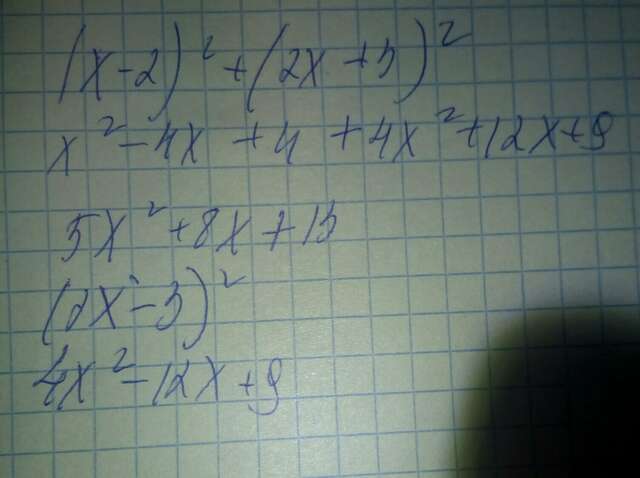 (x-2)² + (2x+3)²
x² - 4x + 4 + 4x² + 12x + 9
5x² + 8x + 13
(2x-3)²
4x² - 12x + 9